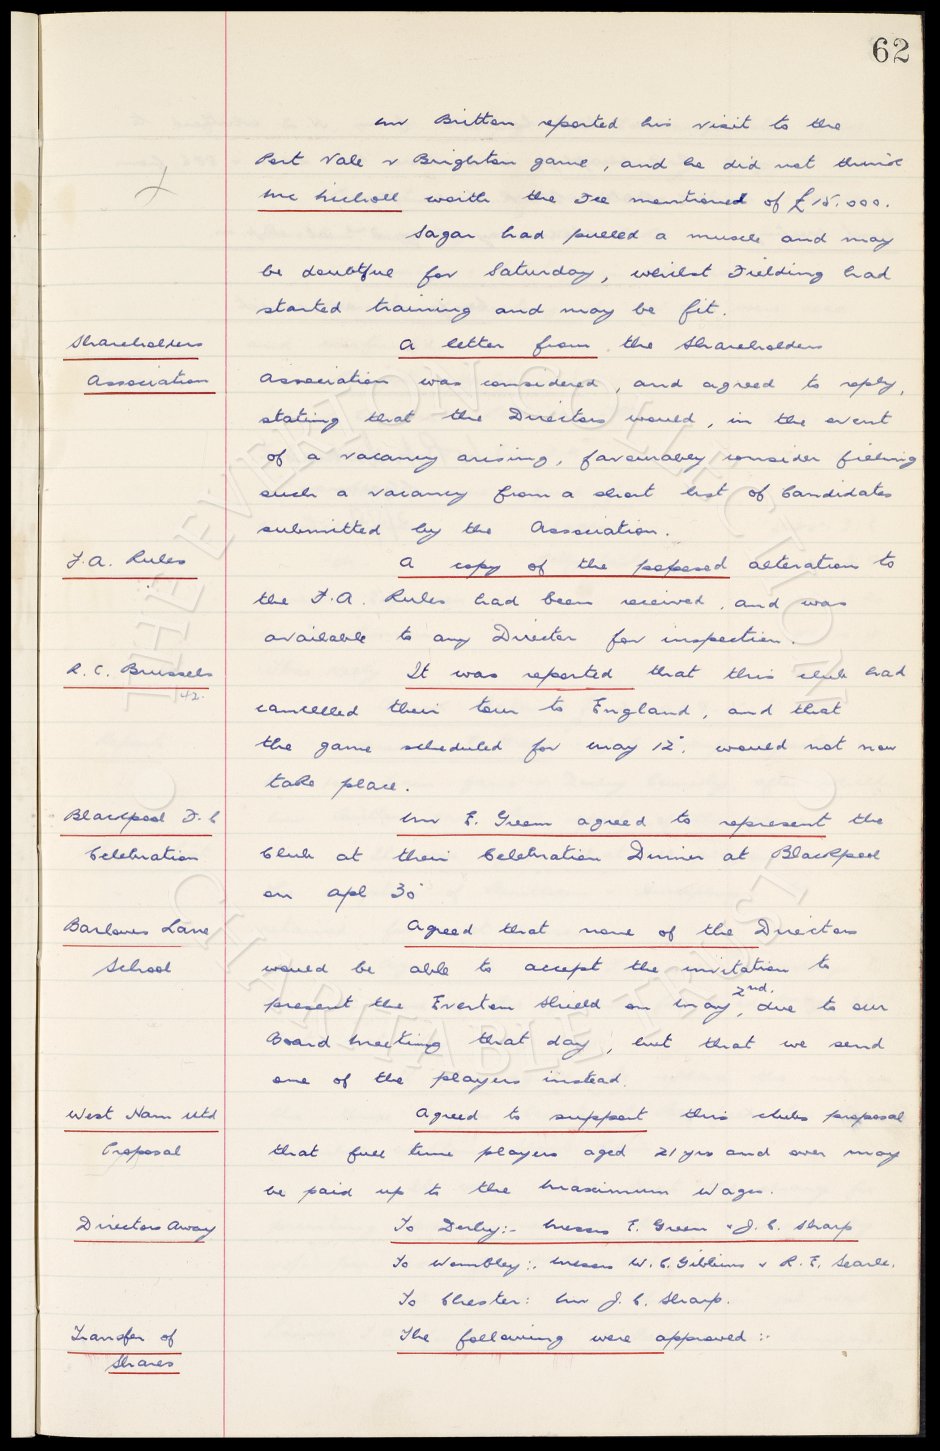 62
Mr Britton reported his visit to the
Port Vale v Brighton game, and he did not think
Mc Nicholl worth the Fee mentioned of £15.000.
Sagar had pulled a muscle and may
be doubtful for Saturday, whilst Fielding had
started training and may be fit.
Shareholders A letter from the Shareholders
Association Association was considered, and agreed to reply,
stating that the Directors would, in the event
of a vacancy arising, favourably consider filling
such a vacancy from a short list of Candidates
submitted by the Association.
F.A. Rules A copy of the poposed alteration to
the F.A. Rules had been received, and was
available to any Director for inspection.
R.C. Brussels It was reported that this club had
42.
cancelled their tour to England, and that
the game scheduled for May 12", would not now
take place.
Blackpool F.C Mr E. Green agreed to represent the
Celebration Club at their Celebration Dinner at Blackpool
on Apl 30"
Barlows Lane Agreed that none of the Directors
School would be able to accept the invitation to
present the Everton Shield on May 2nd, due to our
Board Meeting that day, but that we send
one of the players instead.
West Ham Utd Agreed to support this clubs proposal
Proposal that full time players aged 21 yrs and over may
be paid up to the Maximum Wages.
Directors Away To Derby:- Messrs E. Green & J.C. Sharp
To Wembley:- Messrs W.C. Gibbins & R.E. Searle.
To Chester: Mr J.C. Sharp.
Transfer of The following were approved :-
Shares
THE EVERTON COLLECTION
CHARITABLE TRUST